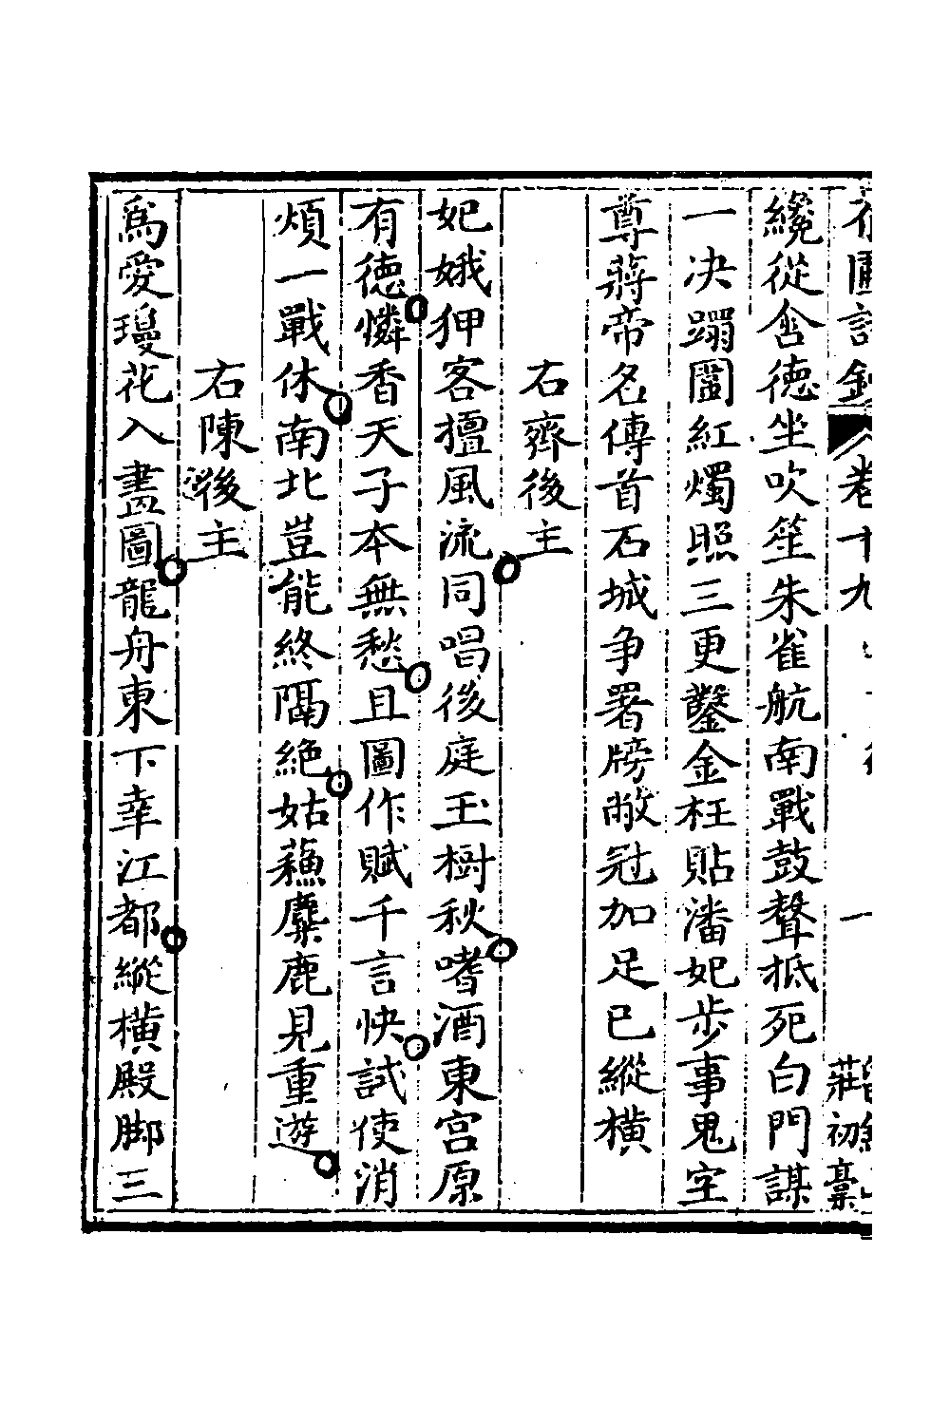 詩鈔 卷十九
莊初稾
纔從含德坐吹笙朱雀航南戰鼓聲抵死白門謀
一决躢圖紅燭照三更鑿金枉貼潘妃步事鬼空
尊蔣帝名傳首石城争署牓敵冠加足已縱橫
右齊後主
妃娥狎客擅風流同唱後庭玉樹秋嗜酒東宫原
有德憐香天子本無愁且圖作賦千言快試使消
煩一戰休南北豈能終隔絶姑蘓麋鹿見重遊
右陳後主
爲愛瓊花入畫圖龍舟東下幸江都縱橫殿脚三